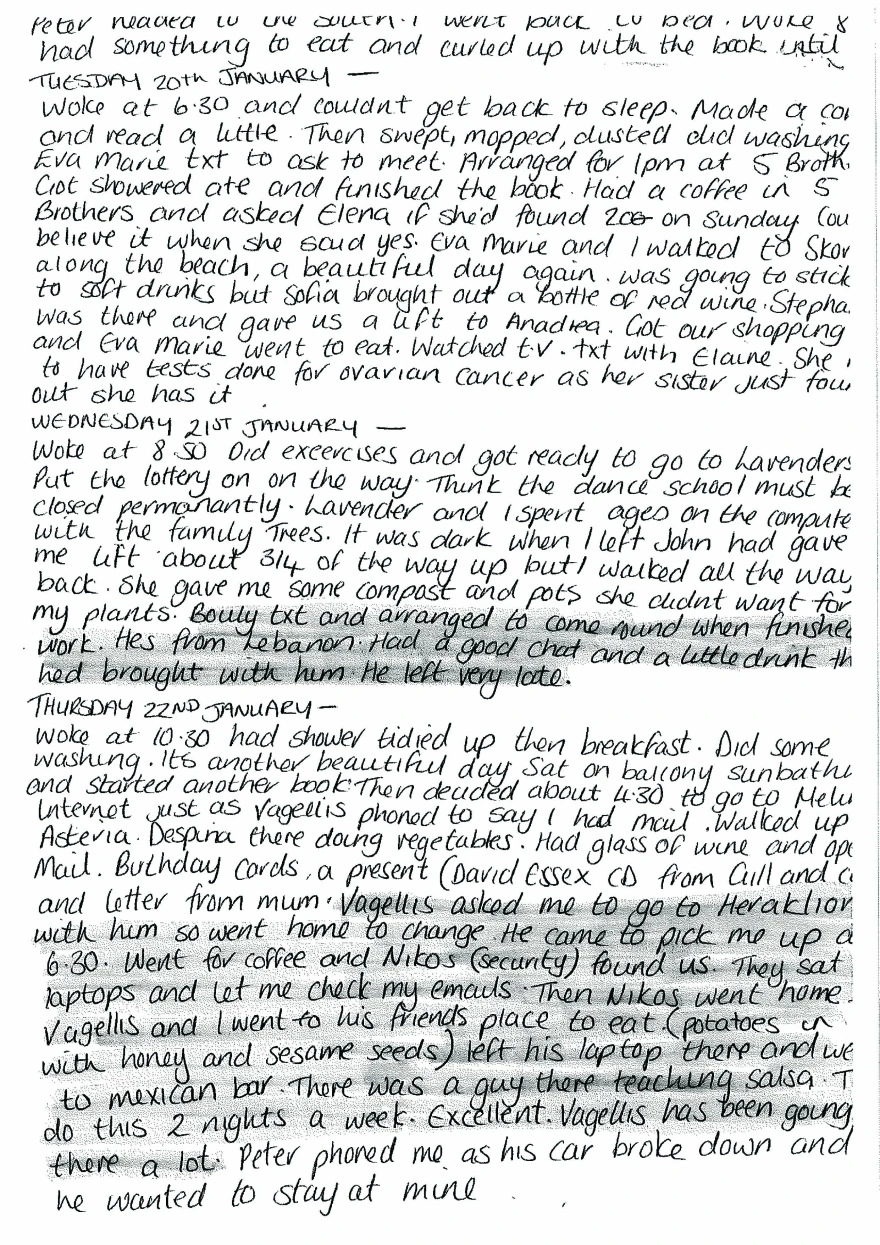 Peter headed to the south. I went back to bed. Woke 8
had something to eat and curled up with the book until
TUESDAY 20th JANUARY —
Woke at 6.30 and couldnt get back to sleep. Made a
and read a little. Then swept, mopped, dusted did washing
Eva Marie txt to ask to meet. Arranged for 1pm at 5 Broth
Got showered ate and finished the book. Had a coffee in 5
Brothers and asked Elena if she'd found on Sunday Cou
believe it when she said yes. Eva Marie and I walked to Skor
along the beach, a beautiful day again. was going to stick
to soft drinks but Sofia brought out a bottle of red wine. Stepha
was there and gave us a lift to Anadrea. Got our shopping
and Eva Marie went to eat. Watched t.v. txt with Elaine. She
to have tests done for ovarian cancer as her sister just fou
out she has it
WEDNESDAY 21ST JANUARY —
Woke at 8.50 Did excercises and got ready to go to Lavenders
Put the lottery on on the way. Think the dance school must be
closed permanantly. Lavender and I spent ages on the compute
with the family Trees. It was dark when I left John had gave
me lift about 3/4 of the way up but I walked all the way
back. She gave me some compost and pots she didnt want for
my plants. Bouly txt and arranged to come round when finishe
work. Hes from Lebanon. Had a good chat and a little drink th
hed brought with him. He left very late.
THURSDAY 22ND JANUARY —
Woke at 10.30 had shower tidied up then breakfast. Did some
washing. Its another beautiful day Sat on balcony sunbathi
and started another book. Then decided about 4.30 to go to Melu
Internet just as Vagellis phoned to say I had mail. Walked up
Asteria. Despina there doing vegetables. Had glass of wine and ope
Mail. Birthday Cards, a present (David Essex CD from Gill and
and letter from mum. Vagellis asked me to go to Heraklion
with him so went home to change. He came to pick me up a
6.30. Went for coffee and Nikos (security) found us. They sat
laptops and let me check my emails. Then Nikos went home.
Vagellis and I went to his friends place to eat (potatoes in
with honey and sesame seeds) left his laptop there and we
to mexican bar. There was a guy there teaching salsa. T
do this 2 nights a week. Excellent. Vagellis has been going
there a lot. Peter phoned me as his car broke down and
he wanted to stay at mine